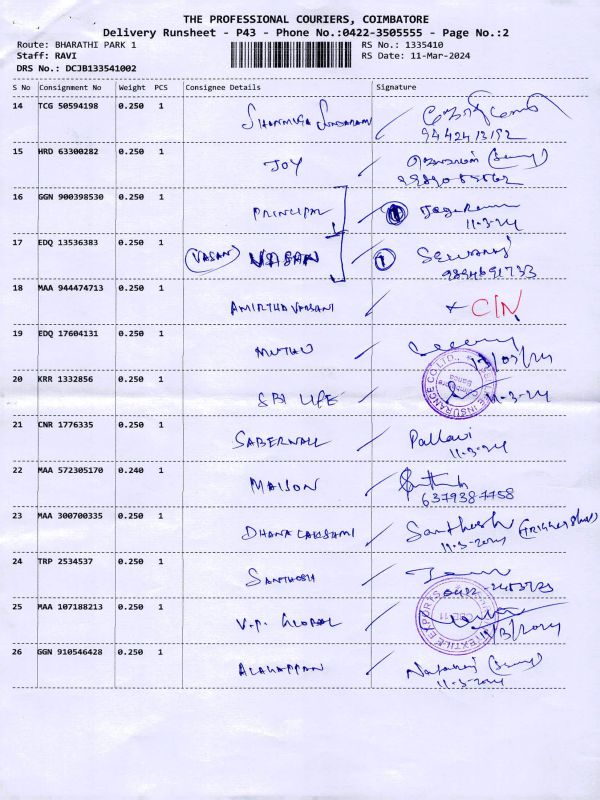 THE PROFESSIONAL COURIERS, COIMBATORE
Delivery Runsheet - P43 - Phone No.:0422-3505555 - Page No.:2
Route: BHARATHI PARK 1 RS No.: 1335410
Staff: RAVI RS Date: 11-Mar-2024
DRS No.: DCJB133541002
S No Consignment No Weight PCS Consignee Details Signature
14 TCG 50594198 0.250 1 SHANMUGA SUNDARAM
9442413152
15 HRD 63300282 0.250 1 JOY
16 GGN 900398530 0.250 1 PRINCIPAL
11-3-24
17 EDQ 13536383 0.250 1 VASAN VASAN 1 SELVARAJ
9894691733
18 MAA 944474713 0.250 1 AMIRTHAVAASANI C/N
19 EDQ 17604131 0.250 1 MUTHU
20 KRR 1332856 0.250 1 SBI LIFE 11-3-24
21 CNR 1776335 0.250 1 SABERWALL Pallavi
11-3-24
22 MAA 572305170 0.240 1 MAISON
6379387758
23 MAA 300700335 0.250 1 DHANALAKSHAMI Santhosh
11-3-2024
24 TRP 2534537 0.250 1 SANTHOSH
25 MAA 107188213 0.250 1 V.P. GLOBAL TEXTILE EXPORTS
26 GGN 910546428 0.250 1 ALAGAPPAN Nataraj
11-3-2024